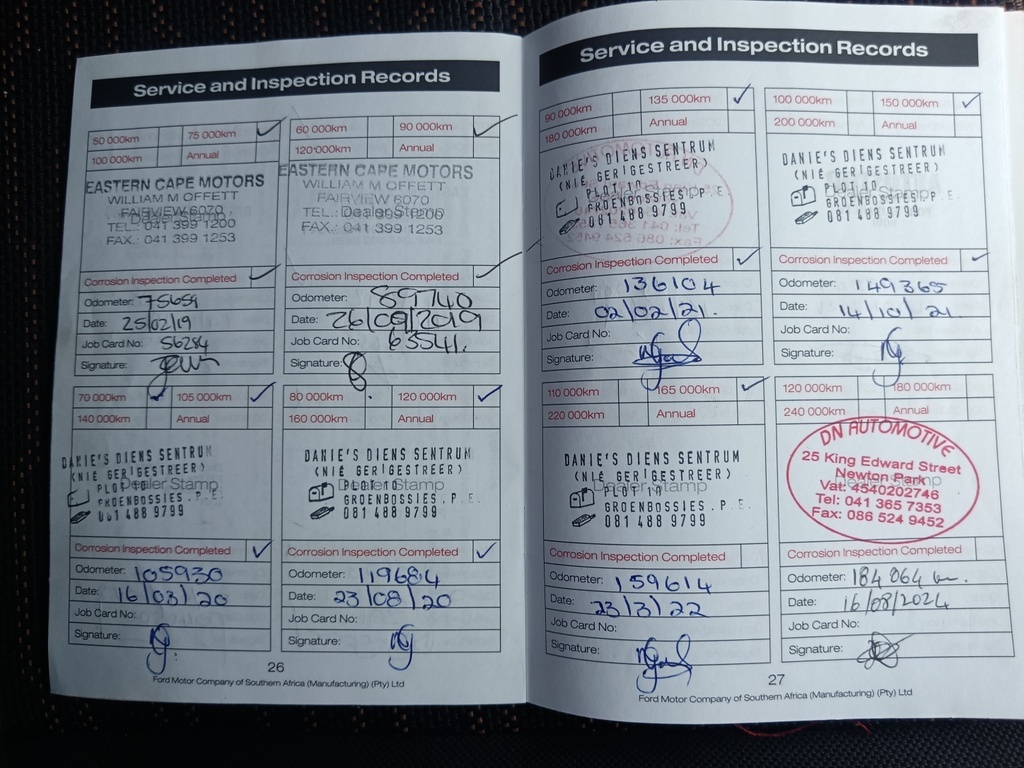 Service and Inspection Records
50 000km 75 000km ✓
100 000km Annual
EASTERN CAPE MOTORS
WILLIAM M OFFETT
FAIRVIEW 6070
Dealer Stamp
TEL.: 041 399 1200
FAX.: 041 399 1253
Corrosion Inspection Completed ✓
Odometer: 75659
Date: 25/02/19
Job Card No: 56284
Signature:
60 000km 90 000km ✓
120 000km Annual
EASTERN CAPE MOTORS
WILLIAM M OFFETT
FAIRVIEW 6070
Dealer Stamp
TEL.: 041 399 1200
FAX.: 041 399 1253
Corrosion Inspection Completed ✓
Odometer: 89740
Date: 26/09/2019
Job Card No: 63541.
Signature:
70 000km 105 000km ✓
140 000km Annual
DANIE'S DIENS SENTRUM
(NIE GERIGESTREER)
Dealer Stamp
PLOT 10
GROENBOSSIES, P.E.
081 488 9799
Corrosion Inspection Completed ✓
Odometer: 105930
Date: 16/03/20
Job Card No:
Signature:
80 000km 120 000km ✓
160 000km Annual
DANIE'S DIENS SENTRUM
(NIE GERIGESTREER)
Dealer Stamp
PLOT 10
GROENBOSSIES, P.E.
081 488 9799
Corrosion Inspection Completed ✓
Odometer: 119684
Date: 23/08/20
Job Card No:
Signature:
26
Ford Motor Company of Southern Africa (Manufacturing) (Pty) Ltd
Service and Inspection Records
90 000km 135 000km ✓
180 000km Annual
DANIE'S DIENS SENTRUM
(NIE GERIGESTREER)
PLOT 10
Dealer Stamp
GROENBOSSIES, P.E
081 488 9799
Corrosion Inspection Completed ✓
Odometer: 136104
Date: 02/02/21.
Job Card No:
Signature:
100 000km 150 000km ✓
200 000km Annual
DANIE'S DIENS SENTRUM
(NIE GERIGESTREER)
PLOT 10
Dealer Stamp
GROENBOSSIES, P.E.
081 488 9799
Corrosion Inspection Completed ✓
Odometer: 149365
Date: 14/10/21
Job Card No:
Signature:
110 000km 165 000km ✓
220 000km Annual
DANIE'S DIENS SENTRUM
(NIE GERIGESTREER)
Dealer Stamp
PLOT 10
GROENBOSSIES, P.E.
081 488 9799
Corrosion Inspection Completed
Odometer: 159614
Date: 23/3/22
Job Card No:
Signature:
120 000km 180 000km
240 000km Annual
DN AUTOMOTIVE
25 King Edward Street
Newton Park
Vat: 4540202746
Tel: 041 365 7353
Fax: 086 524 9452
Corrosion Inspection Completed
Odometer: 184 064 km.
Date: 16/08/2024
Job Card No:
Signature:
27
Ford Motor Company of Southern Africa (Manufacturing) (Pty) Ltd